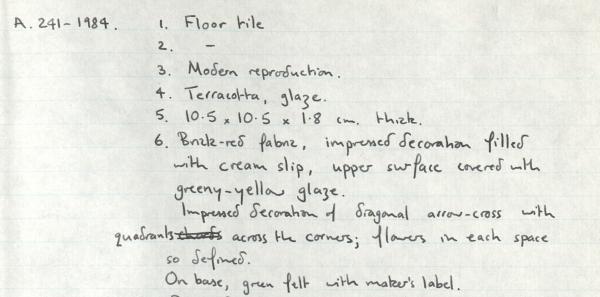 A. 241-1984. 1. Floor tile
2. -
3. Modern reproduction.
4. Terracotta, glaze.
5. 10.5 x 10.5 x 1.8 cm. thick.
6. Brick-red fabric, impressed decoration filled
with cream slip, upper surface covered with
greeny-yellow glaze.
Impressed decoration of diagonal arrow-cross with
quadrants across the corners; flowers in each space
so defined.
On base, green felt with maker's label.